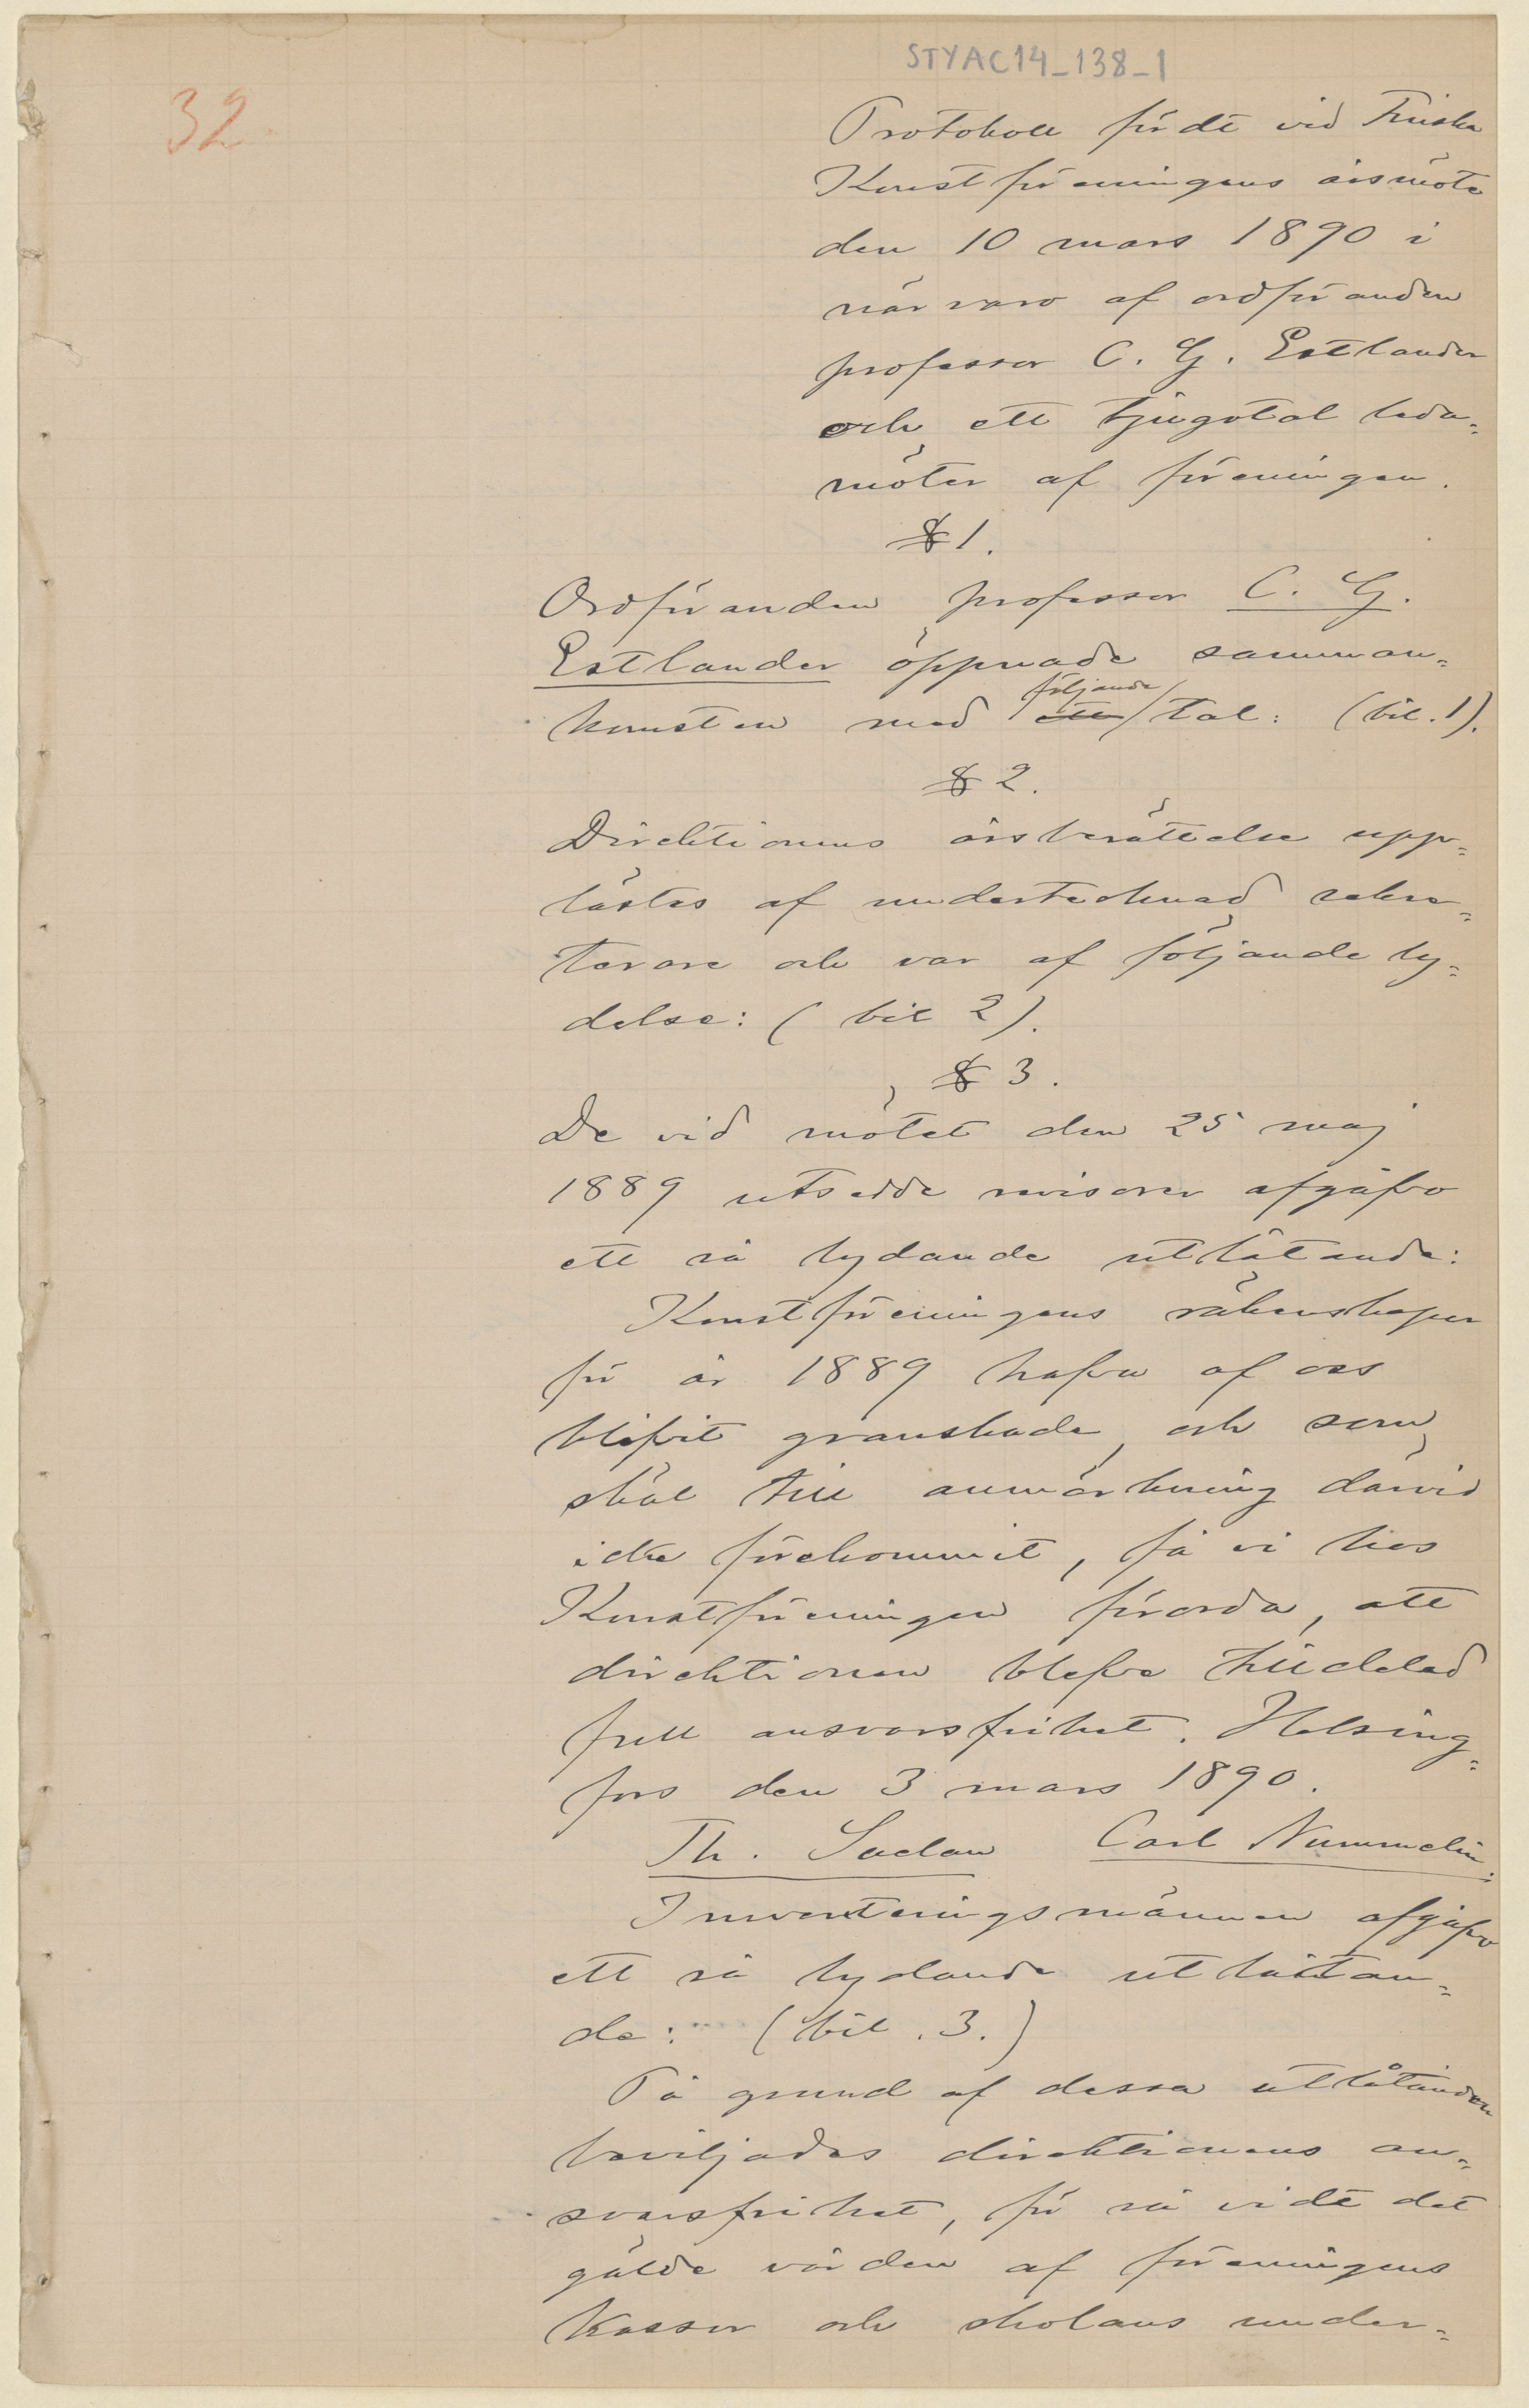 STYAC14_138_1
32.
Protokoll fördt vid Finska
Konstföreningens årsmöte
den 10 mars 1890 i
närvaro af ordföranden
professor C. G. Estlander
och ett tjugotal leda-
möter af föreningen.
§ 1.
Ordföranden professor C. G.
Estlander öppnade samman-
komsten med ett följande tal: (bil. 1).
§ 2.
Direktionens årsberättelse upp-
lästes af undertecknad sekre-
terare och var af följande ly-
delse: (bil 2).
§ 3.
De vid mötet den 25 maj
1889 utsedde revisorer afgåfvo
ett så lydande utlåtande:
Konstföreningens räkenskaper
för år 1889 hafva af oss
blifvit granskade, och som
skäl till anmärkning därvid
icke förekommit, få vi hos
Konstföreningen förorda, att
direktionen blefve tilldelad
full ansvarsfrihet. Helsing-
fors den 3 mars 1890.
Th. Saelan Carl Nummelin.
Inventeringsmännen afgåfvo
ett så lydande utlåtan-
de: (bil. 3.)
På grund af dessa utlåtanden
beviljades direktionens an-
svarsfrihet, för så vidt det
gälde vården af föreningens
kassor och skolans under-